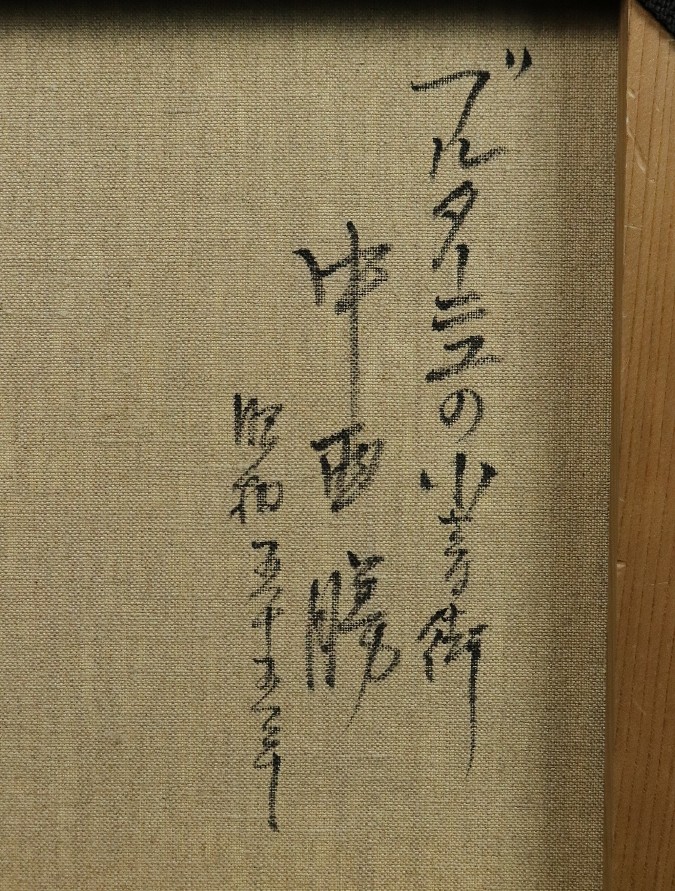 ブルターニュの小さな街
中西勝
昭和五十五年